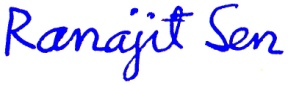 Ranajit Sen